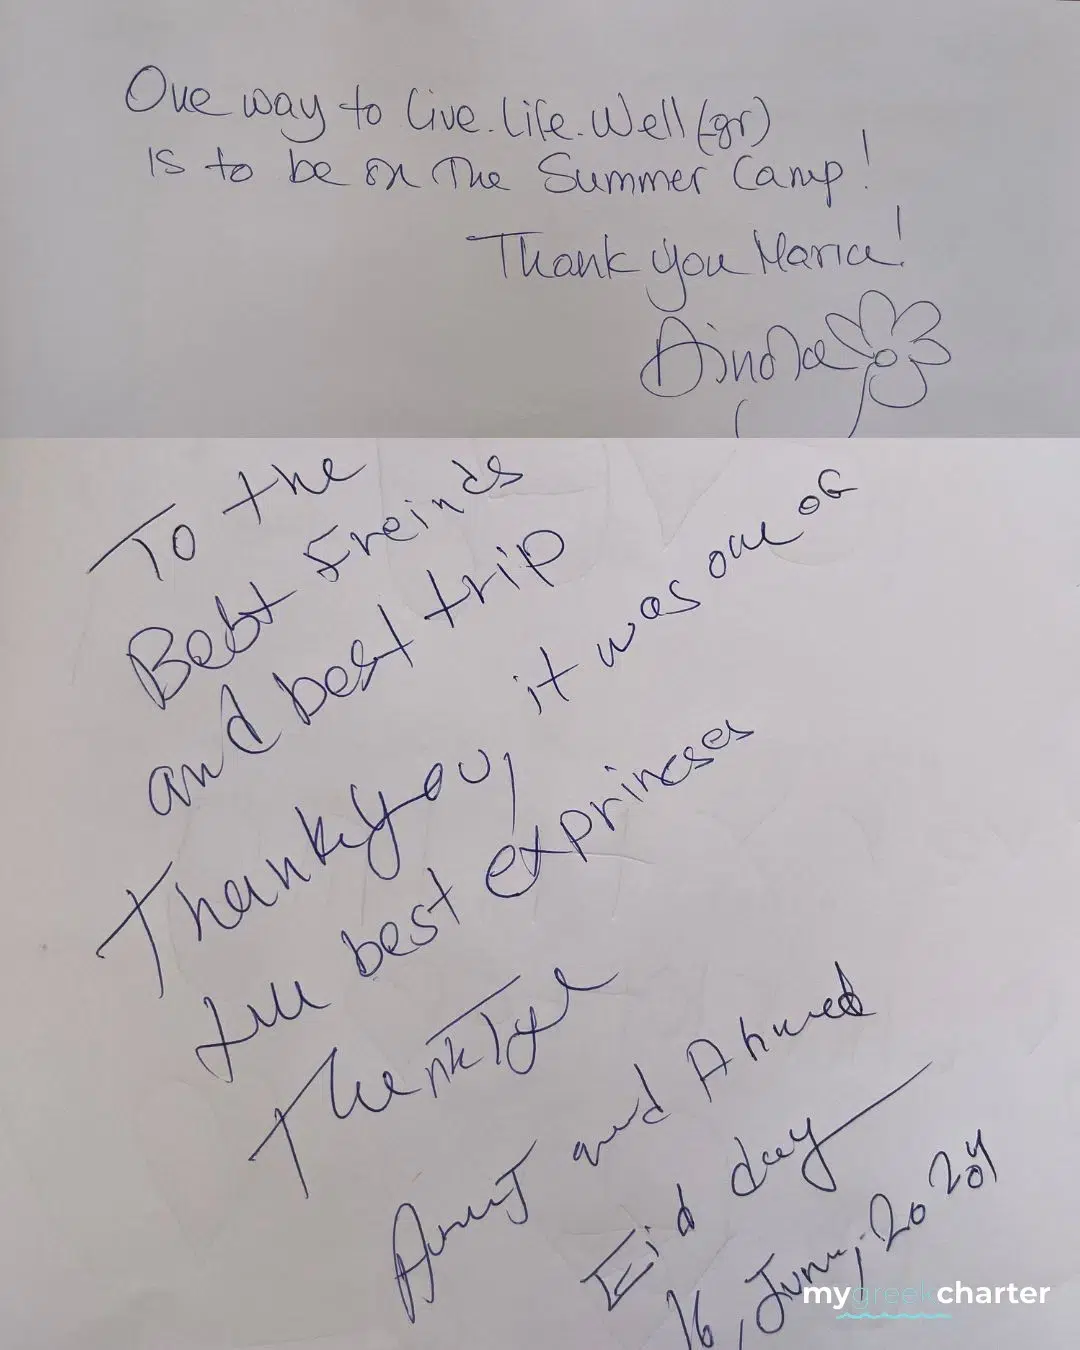 One way to live.life.well(.gr)
is to be on the Summer Camp!
Thank you Maria!
To the
Best Freinds
and best trip
Thank you, it was one of
best exprinses
Thank
and Ahmed
Eid day
16, June, 2024
mygreekcharter